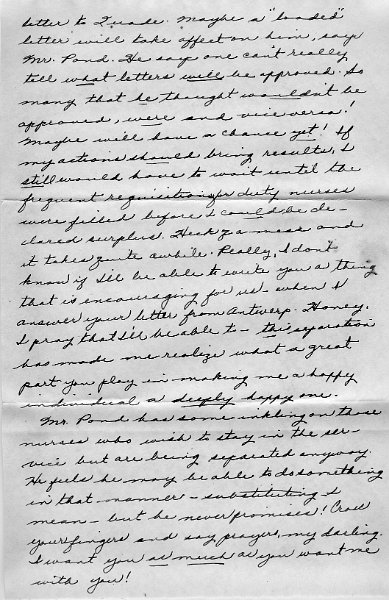 letter to Quade. Maybe a "loaded"
letter will take affect on him, says
Mr. Pond. He says one can't really
tell what letters will be approved. So
many that he thought wouldn't be
approved, were and vice versa!
Maybe will have a chance yet! If
my actions should bring results, I
still would have to wait until the
frequent requisition for duty nurses
were filled before I could be de-
clared surplus. Heck of a mess and
it takes quite awhile. Really, I don't
know if I'll be able to write you a thing
that is encouraging for us - when I
answer your letter from Antwerp. Honey,
I pray that I'll be able to - this separation
has made me realize what a great
part you play in making me a happy
individual a deeply happy one.
Mr. Pond has some inkling on those
nurses who wish to stay in the ser-
vice but are being separated anyway.
He feels he may be able to do something
in that manner - substituting I
mean - but he never promises! Cross
your fingers and say prayers, my darling.
I want you as much as you want me
with you!